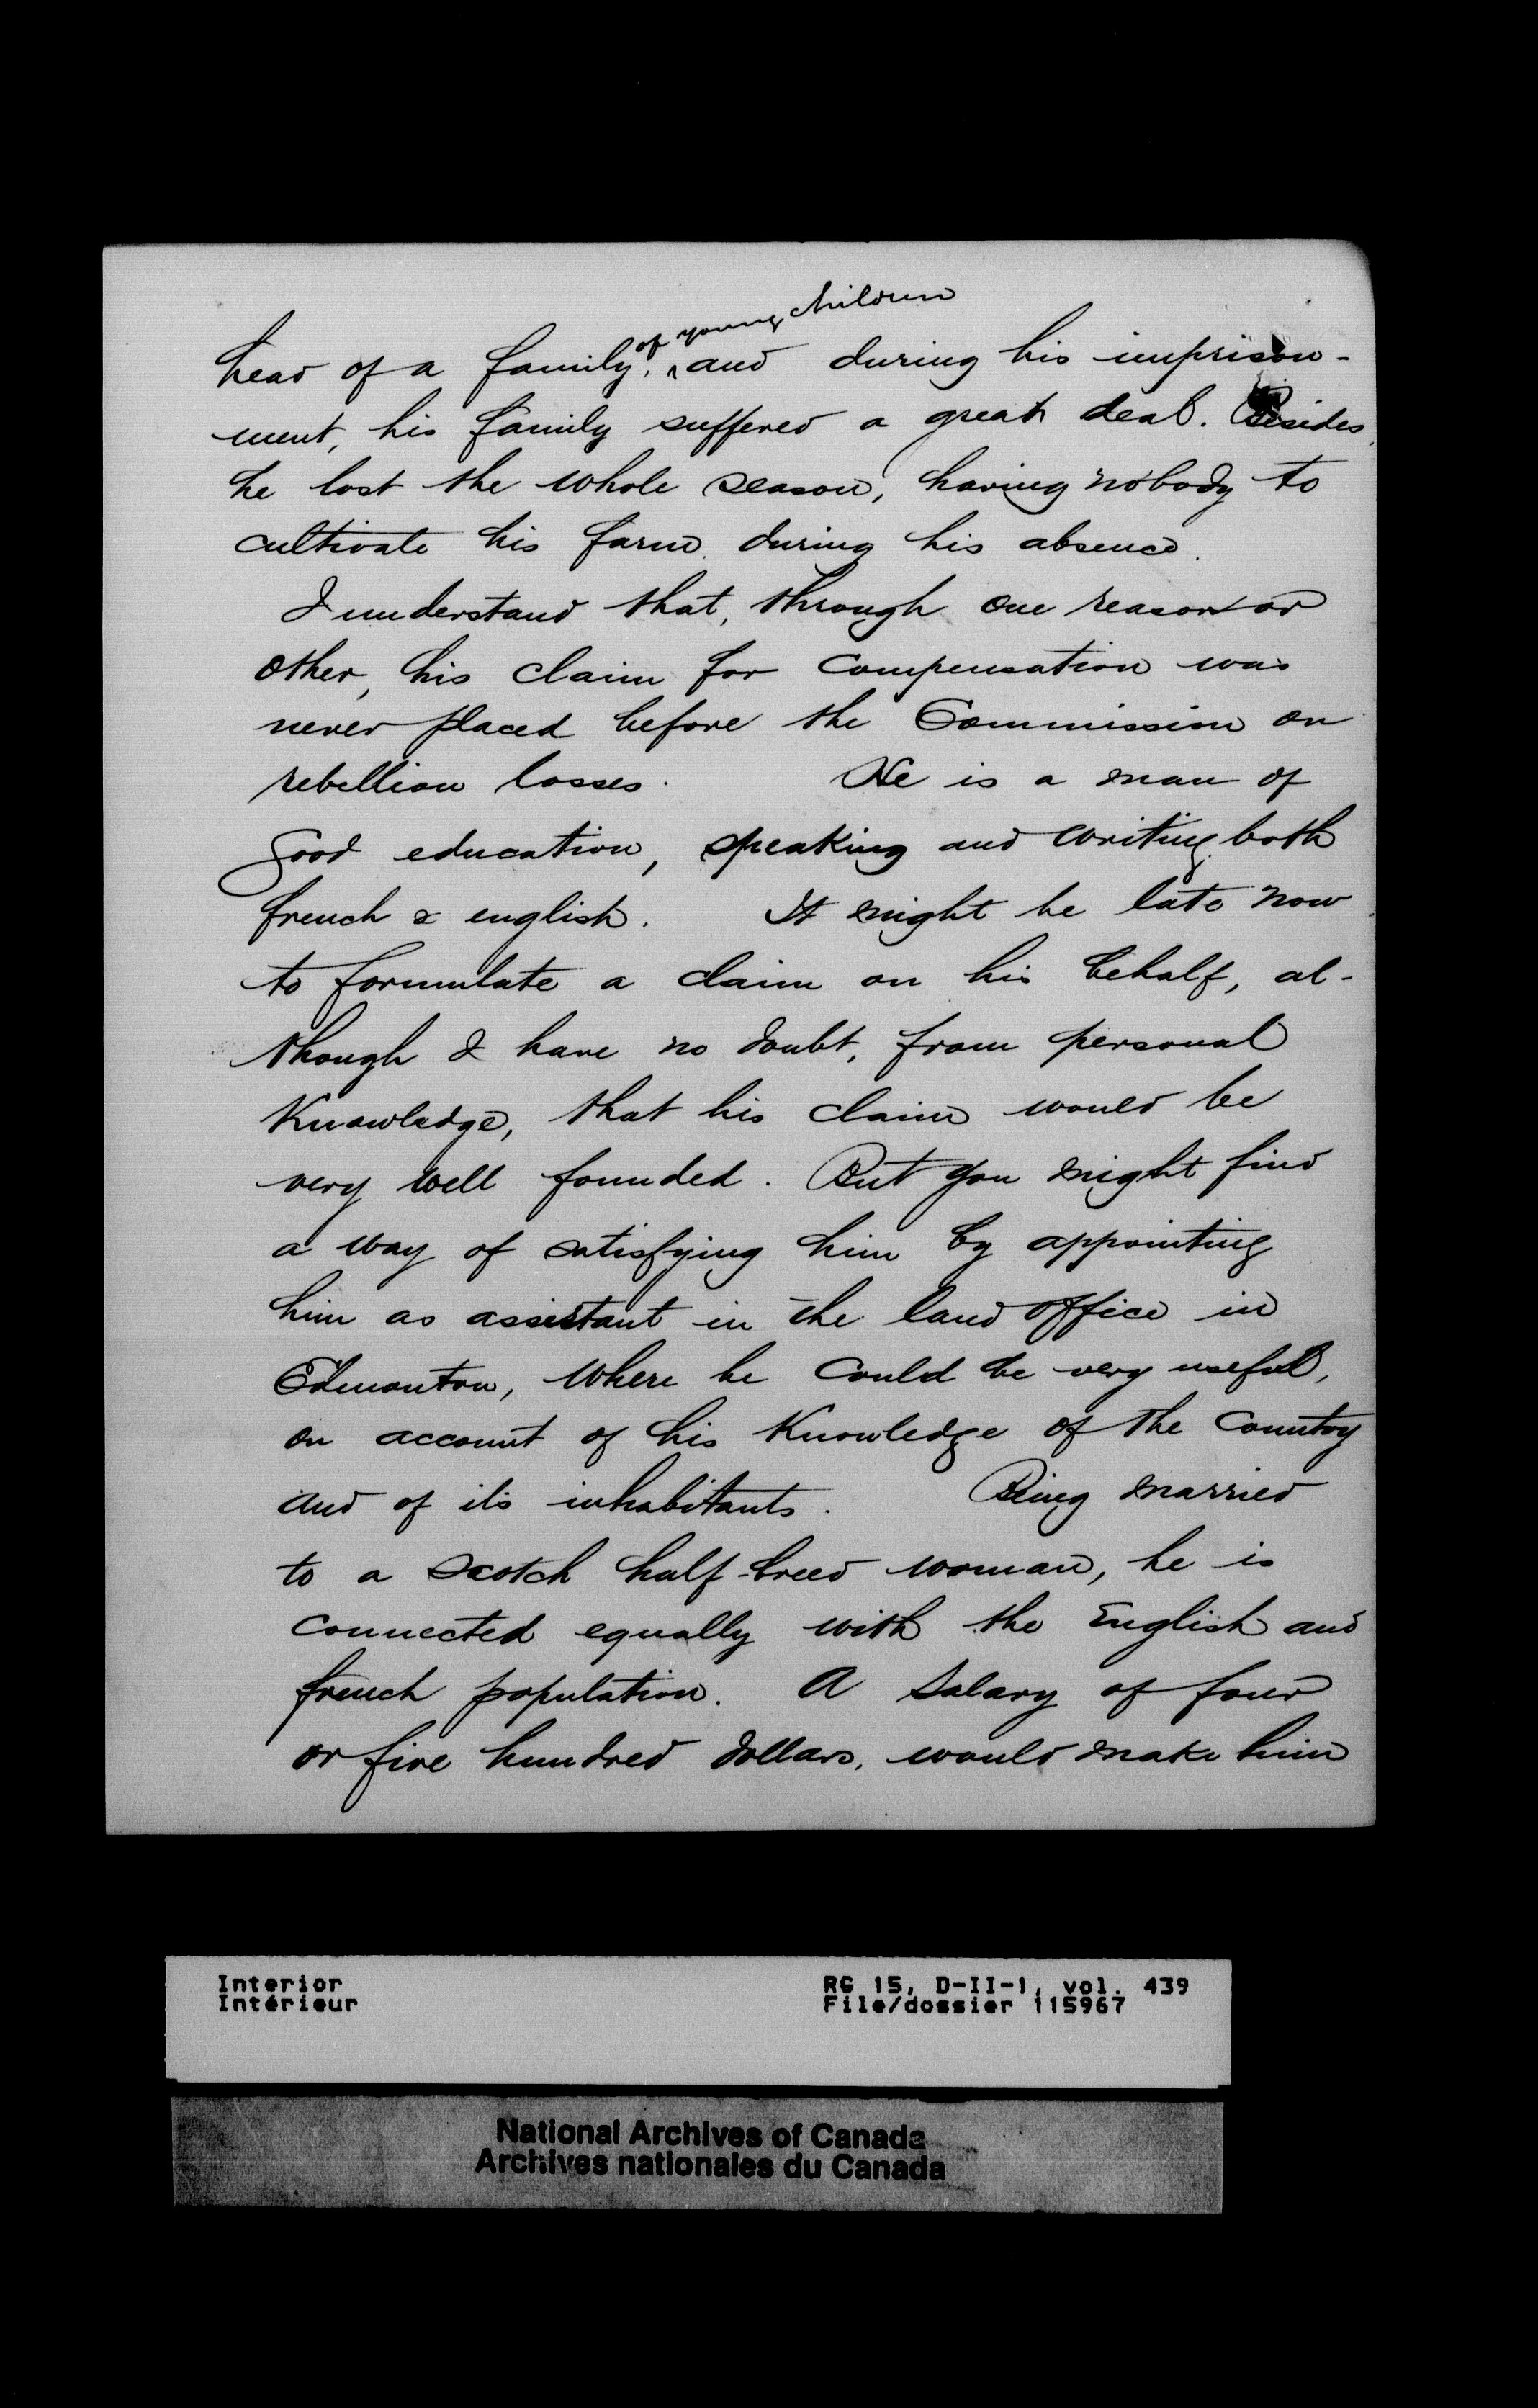 of young children
head of a family, and during his imprison-
ment, his family suffered a great deal. Besides,
he lost the whole season, having nobody to
cultivate his farm during his absence.
I understand that, through one reason or
other, his claim for compensation was
never placed before the Commission on
rebellion losses. He is a man of
good education, speaking and writing both
french & english. It might be late now
to formulate a claim on his behalf, al-
though I have no doubt, from personal
Knowledge, that his claim would be
very well founded. But you might find
a way of satisfying him by appointing
him as assistant in the land office in
Edmonton, where he could be very useful,
on account of his Knowledge of the Country
and of its inhabitants. Being married
to a Scotch half-breed woman, he is
connected equally with the English and
french population. A Salary of four
or five hundred dollars, would make him
Interior
Intérieur
RG 15, D-II-1, vol. 439
File/dossier 115967
National Archives of Canada
Archives nationales du Canada